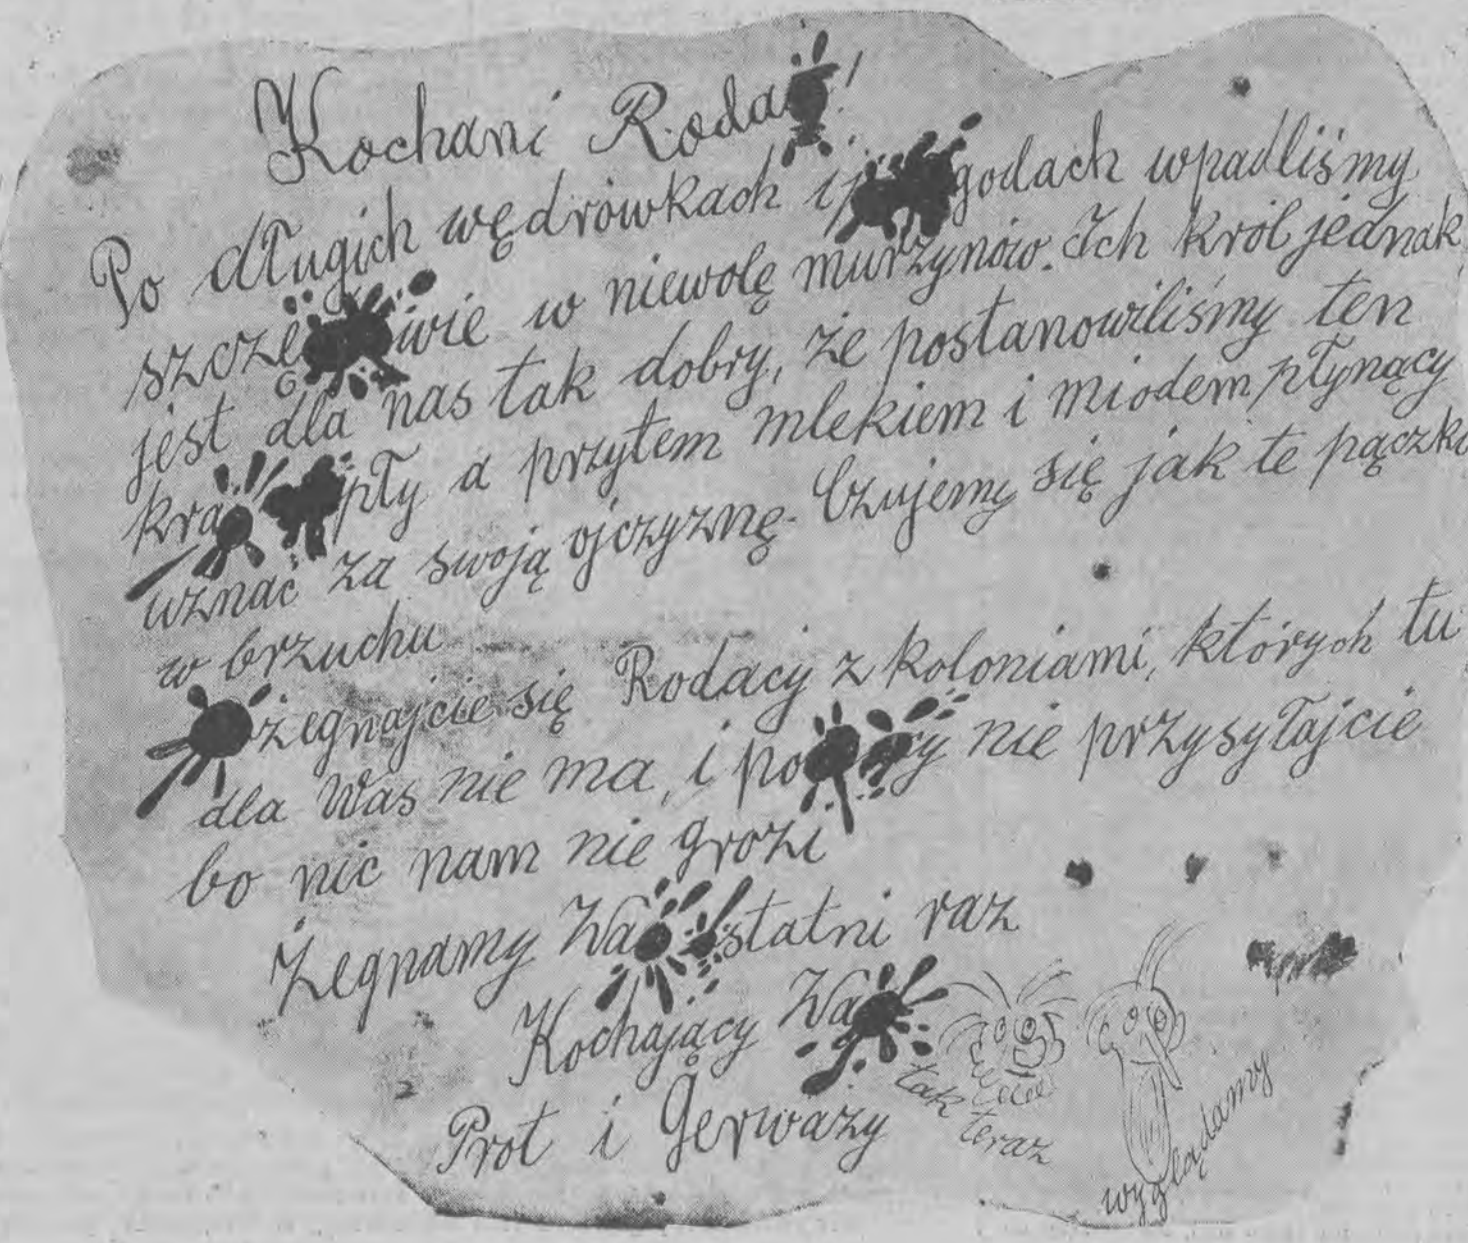 Kochani Roda !
Po długich wędrówkach i p godach wpadliśmy
szczę iwie w niewolę murzynów. Ich król jednak
jest dla nas tak dobry, że postanowiliśmy ten
kra pły a przytem mlekiem i miodem płynący
uznać za swoją ojczyznę. Czujemy się jak te pączki
w brzuchu
żegnajcie się Rodacy z koloniami, których tu
dla Was nie ma, i po y nie przysyłajcie
bo nic nam nie grozi
Żegnamy Wa statni raz
Kochający Wa
Prot i Gerwazy
tak teraz
wyglądamy